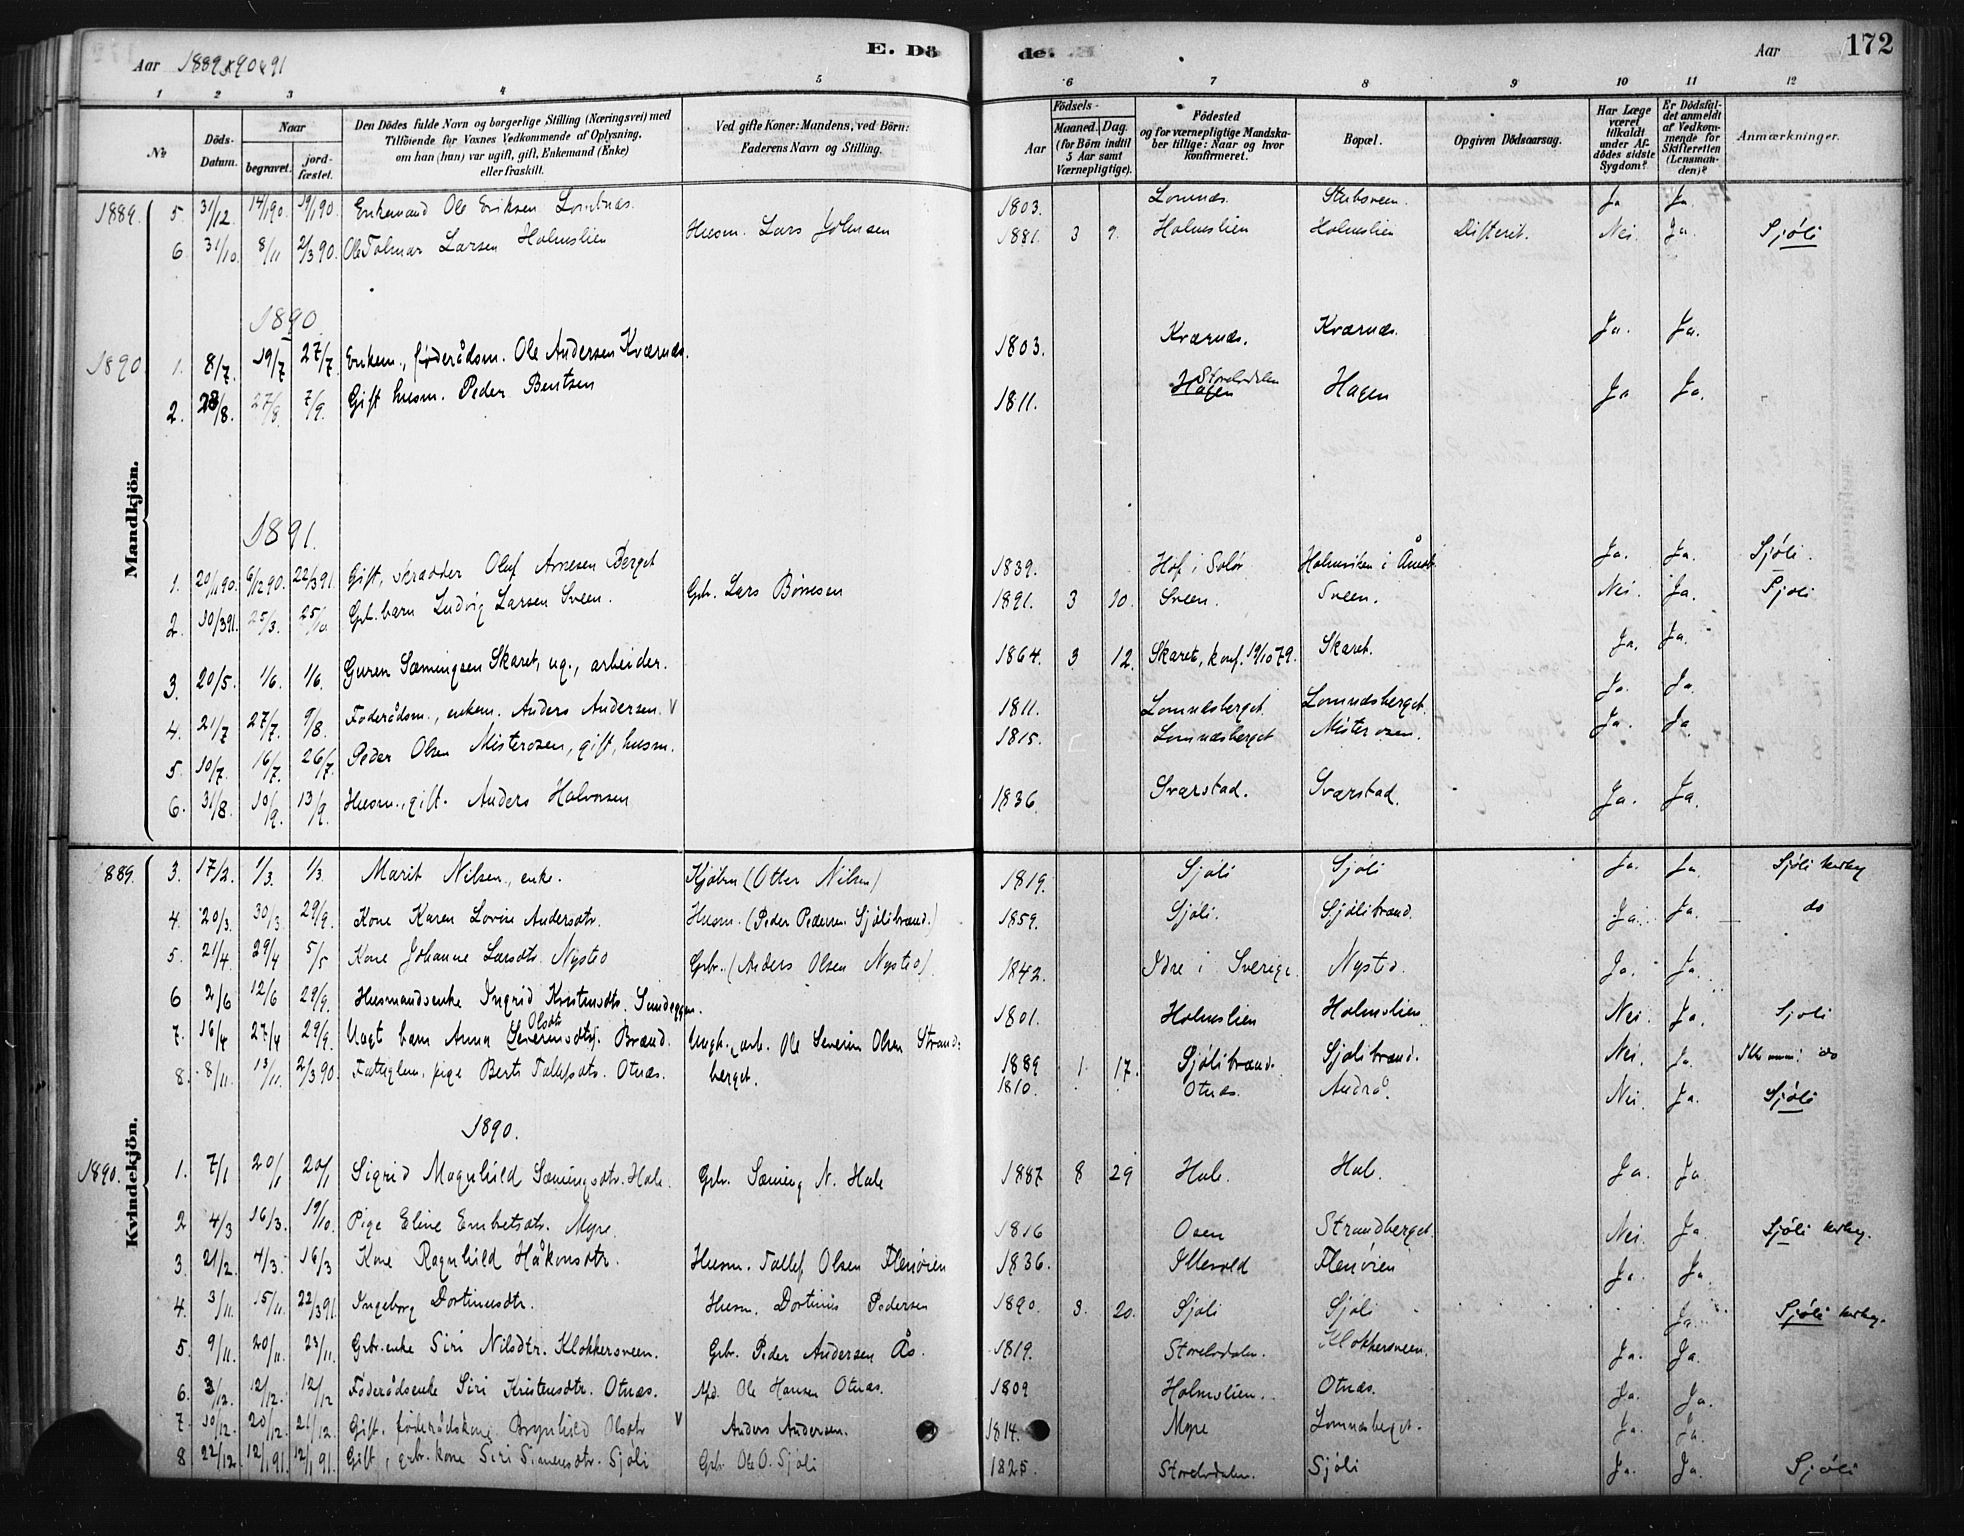 E. Dö de.
172
Aar 1889 x 90 x 91
Aar
1 2 3 4 5 6 7 8 9 10 11 12
No
Döds-Datum.
Naar
begravet. jord-fæstet.
Den Dödes fulde Navn og borgerlige Stilling (Næringsvei) med
Tilföiende for Voxnes Vedkommende af Oplysning,
om han (hun) var ugift, gift, Enkemand (Enke)
eller fraskilt.
Ved gifte Koner: Mandens, ved Börn:
Faderens Navn og Stilling.
Aar
Födsels-
Maaned. Dag.
(for Börn indtil
5 Aar samt
Værnepligtige).
Födested
og for værnepligtige Mandska-
ber tillige: Naar og hvor
konfirmeret.
Bopæl.
Opgiven Dödsaarsag.
Har Læge
været
tilkaldt
under Af-
dödes sidste
Sygdom?
Er Dödsfal-
det anmeldt
af Vedkom-
mende for
Skifteretten
(Lensman-
den)?
Anmærkninger.
Mandkjön.
1889. 5. 31/12 14/1 90. 19/1 90. Enkemand Ole Eriksen Lombnæs. 1803. Lomnæs. Stubsveen. Ja Ja.
6. 31/10. 8/11 2/3 90. Ole Tolmar Larsen Holmslien Husm. Lars Johnsen 1881. 3 9. Holmslien Holmslien Difterit. Nei. Ja. Sjöli
1890.
1890. 1. 8/7. 19/7 27/7 Enkem., föderådsm. Ole Andersen Kværnæs. 1803. Kværnæs. Kværnæs. Ja. Ja.
2. 23/8. 27/8. 7/9. Gift husm. Peder Bentsen 1811. Storelvdalen Hagen Hagen Ja Ja.
1891.
1. 20/11 90. 6/12 90. 22/3 91. Gift, skrædder Oluf Arnesen Berget 1839. Hof i Solör Holmviken i Åmot. Ja. Ja. Sjöli.
2. 10/3 91. 25/3. 25/10 Grb. barn Ludvig Larsen Sveen. Grb. Lars Börresen 1891. 3 10. Sveen. Sveen. Nei. Ja. Sjöli
3. 20/5. 1/6. 1/6. Guren Sæmingsen Skaret, ug., arbeider. 1864. 3 12. Skaret, konf. 19/10 79. Skaret. Ja. Ja.
4. 21/7 27/7. 9/8. Föderådsm., enkem. Anders Andersen. V 1811. Lomnæsberget. Lomnæsberget. Ja. Ja.
5. 10/7. 16/7. 26/7. Peder Olsen Misterosen, gift, husm. 1815. Lomnæsberget Misterosen. Ja. Ja
6. 31/8. 10/9. 13/9. Husm., gift. Anders Halvorsen 1836. Sværstad. Sværstad. Ja. Ja.
Kvindekjön.
1889. 3. 17/2. 1/3. 1/3. Marit Nilsen, enke. Kjöbm. (Otter Nilsen) 1819. Sjöli Sjöli Ja. Ja Sjöli kirkeg.
4. 20/3. 30/3. 29/9. Kone Karen Lovise Andersdtr. Husm. (Peder Pedersen Sjölibrænd.) 1859. Sjöli. Sjölibrænd. Ja. Ja. do
5. 21/4. 29/4 5/5 Kone Johanne Larsdtr. Nysted Grbr. (Anders Olsen Nysted). 1842. Idre i Sverige. Nysted. Ja. Ja.
6 2/6 12/6 29/9. Husmandsenke Ingrid Kristensdtr. Sundeggen. 1801. Holmslien Holmslien Nei. Ja. Sjöli
7. 16/4 27/4 29/9. Uægt barn Anna Olsdtr. Brænd. Ungk., arb. Ole Severin Olsen Strand- 1889 1. 17. Sjölibrænd. Sjölibrænd. Nei. Ja. do
8. 8/11. 13/11. 2/3 90. Fattiglem, pige Berte Tollefsdtr. Otnæs. berget. 1810. Otnæs. Andrå. Nei. Ja. Sjöli
1890.
1890. 1. 7/1 20/1 20/1 Sigrid Magnhild Sæmingsdtr. Hole. Grbr. Sæming N. Hole 1887 8 29 Hole. Hole. Ja. Ja.
2 4/3 16/3. 19/10. Pige Eline Embretsdtr. Myre. 1816 Osen Strandberget Nei. Ja Sjöli kirkeg.
3. 21/2. 4/3. 16/3 Kone Ragnhild Håkonsdtr. Husm. Tollef Olsen Flenöien 1836. Illevold Flenöien Ja. Ja.
4. 3/11. 15/11. 22/3 91. Ingeborg Dortinusdtr. Husm. Dortinus Pedersen 1890. 3. 20. Sjöli Sjöli Ja. Sjöli kirkeg.
5. 9/11. 20/11. 23/11. Grbr. enke Siri Nilsdtr. Klokkersveen. Grbr. Peder Andersen Ås. 1819. Storelvdalen. Klokkersveen. Ja. Ja.
6. 3/12. 12/12. 12/12 Föderådsenke Siri Kristensdtr. Otnæs. Afd. Ole Hansen Otnæs. 1809 Holmslien. Otnæs. Ja. Ja.
7. 10/12. 20/12. 21/12. Gift. föderådskone Brynhild Olsdtr V Anders Andersen. 1814. Myre Lomnæsberget. Ja. Ja.
8 22/12. 12/1 91. 12/1 91. Gift, grbr. kone Siri Simensdtr. Sjöli Grbr. Ole O. Sjöli 1825. Storelvdalen. Sjöli Ja. Ja. Sjöli